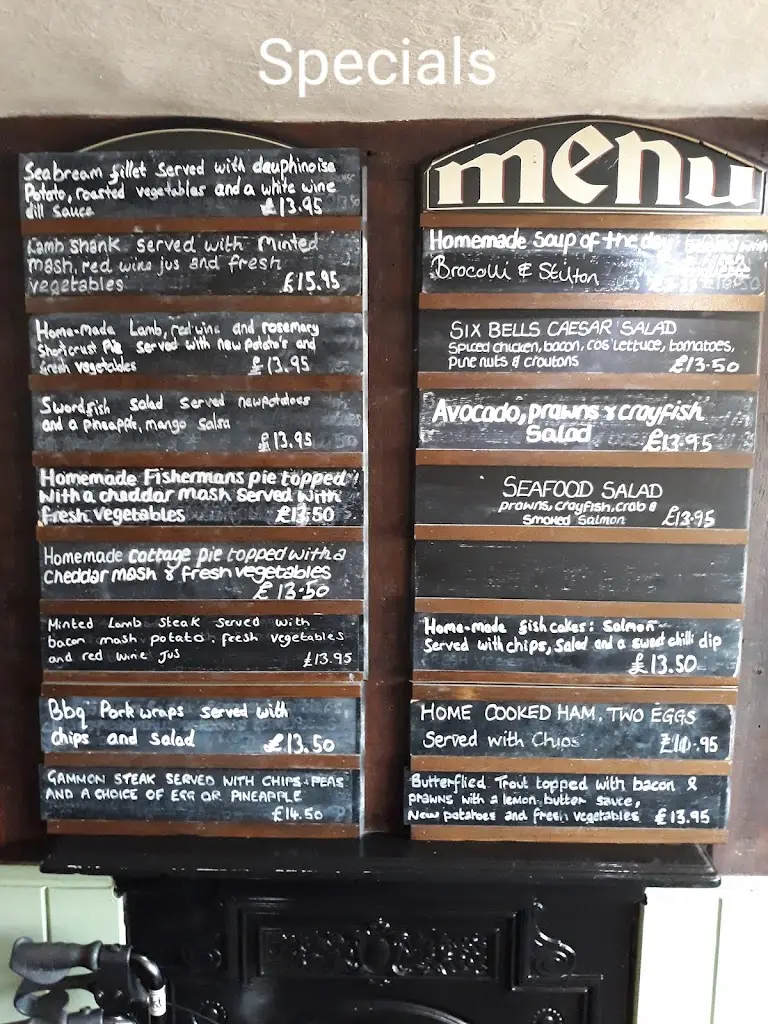 Specials
Seabream fillet served with dauphinoise
Potato, roasted vegetables and a white wine
dill sauce £13.95
Lamb shank served with Minted
mash, red wine jus and fresh
vegetables £15.95
Home-made Lamb, red wine and rosemary
Shortcrust Pie served with new potato's and
fresh vegetables £13.95
Swordfish salad served new potatoes
and a pineapple, mango salsa
£13.95
Homemade Fishermans pie topped
with a cheddar mash served with
fresh vegetables £13.50
Homemade cottage pie topped with a
cheddar mash & fresh vegetables
£13.50
Minted Lamb Steak served with
bacon mash potato, fresh vegetables
and red wine jus £13.95
Bbq Pork wraps served with
chips and salad £13.50
GAMMON STEAK SERVED WITH CHIPS, PEAS
AND A CHOICE OF EGG OR PINEAPPLE
£14.50
menu
Homemade Soup of the day
Brocolli & Stilton
SIX BELLS CAESAR SALAD
Spiced chicken, bacon, cos lettuce, tomatoes,
pine nuts & croutons £13.50
Avocado, prawns & crayfish
Salad £13.95
SEAFOOD SALAD
prawns, crayfish, crab &
smoked salmon £13.95
Home-made fishcakes: Salmon
Served with chips, salad and a sweet chilli dip
£13.50
HOME COOKED HAM, TWO EGGS
Served with Chips £10.95
Butterflied Trout topped with bacon &
prawns with a lemon butter sauce,
New potatoes and fresh vegetables £13.95